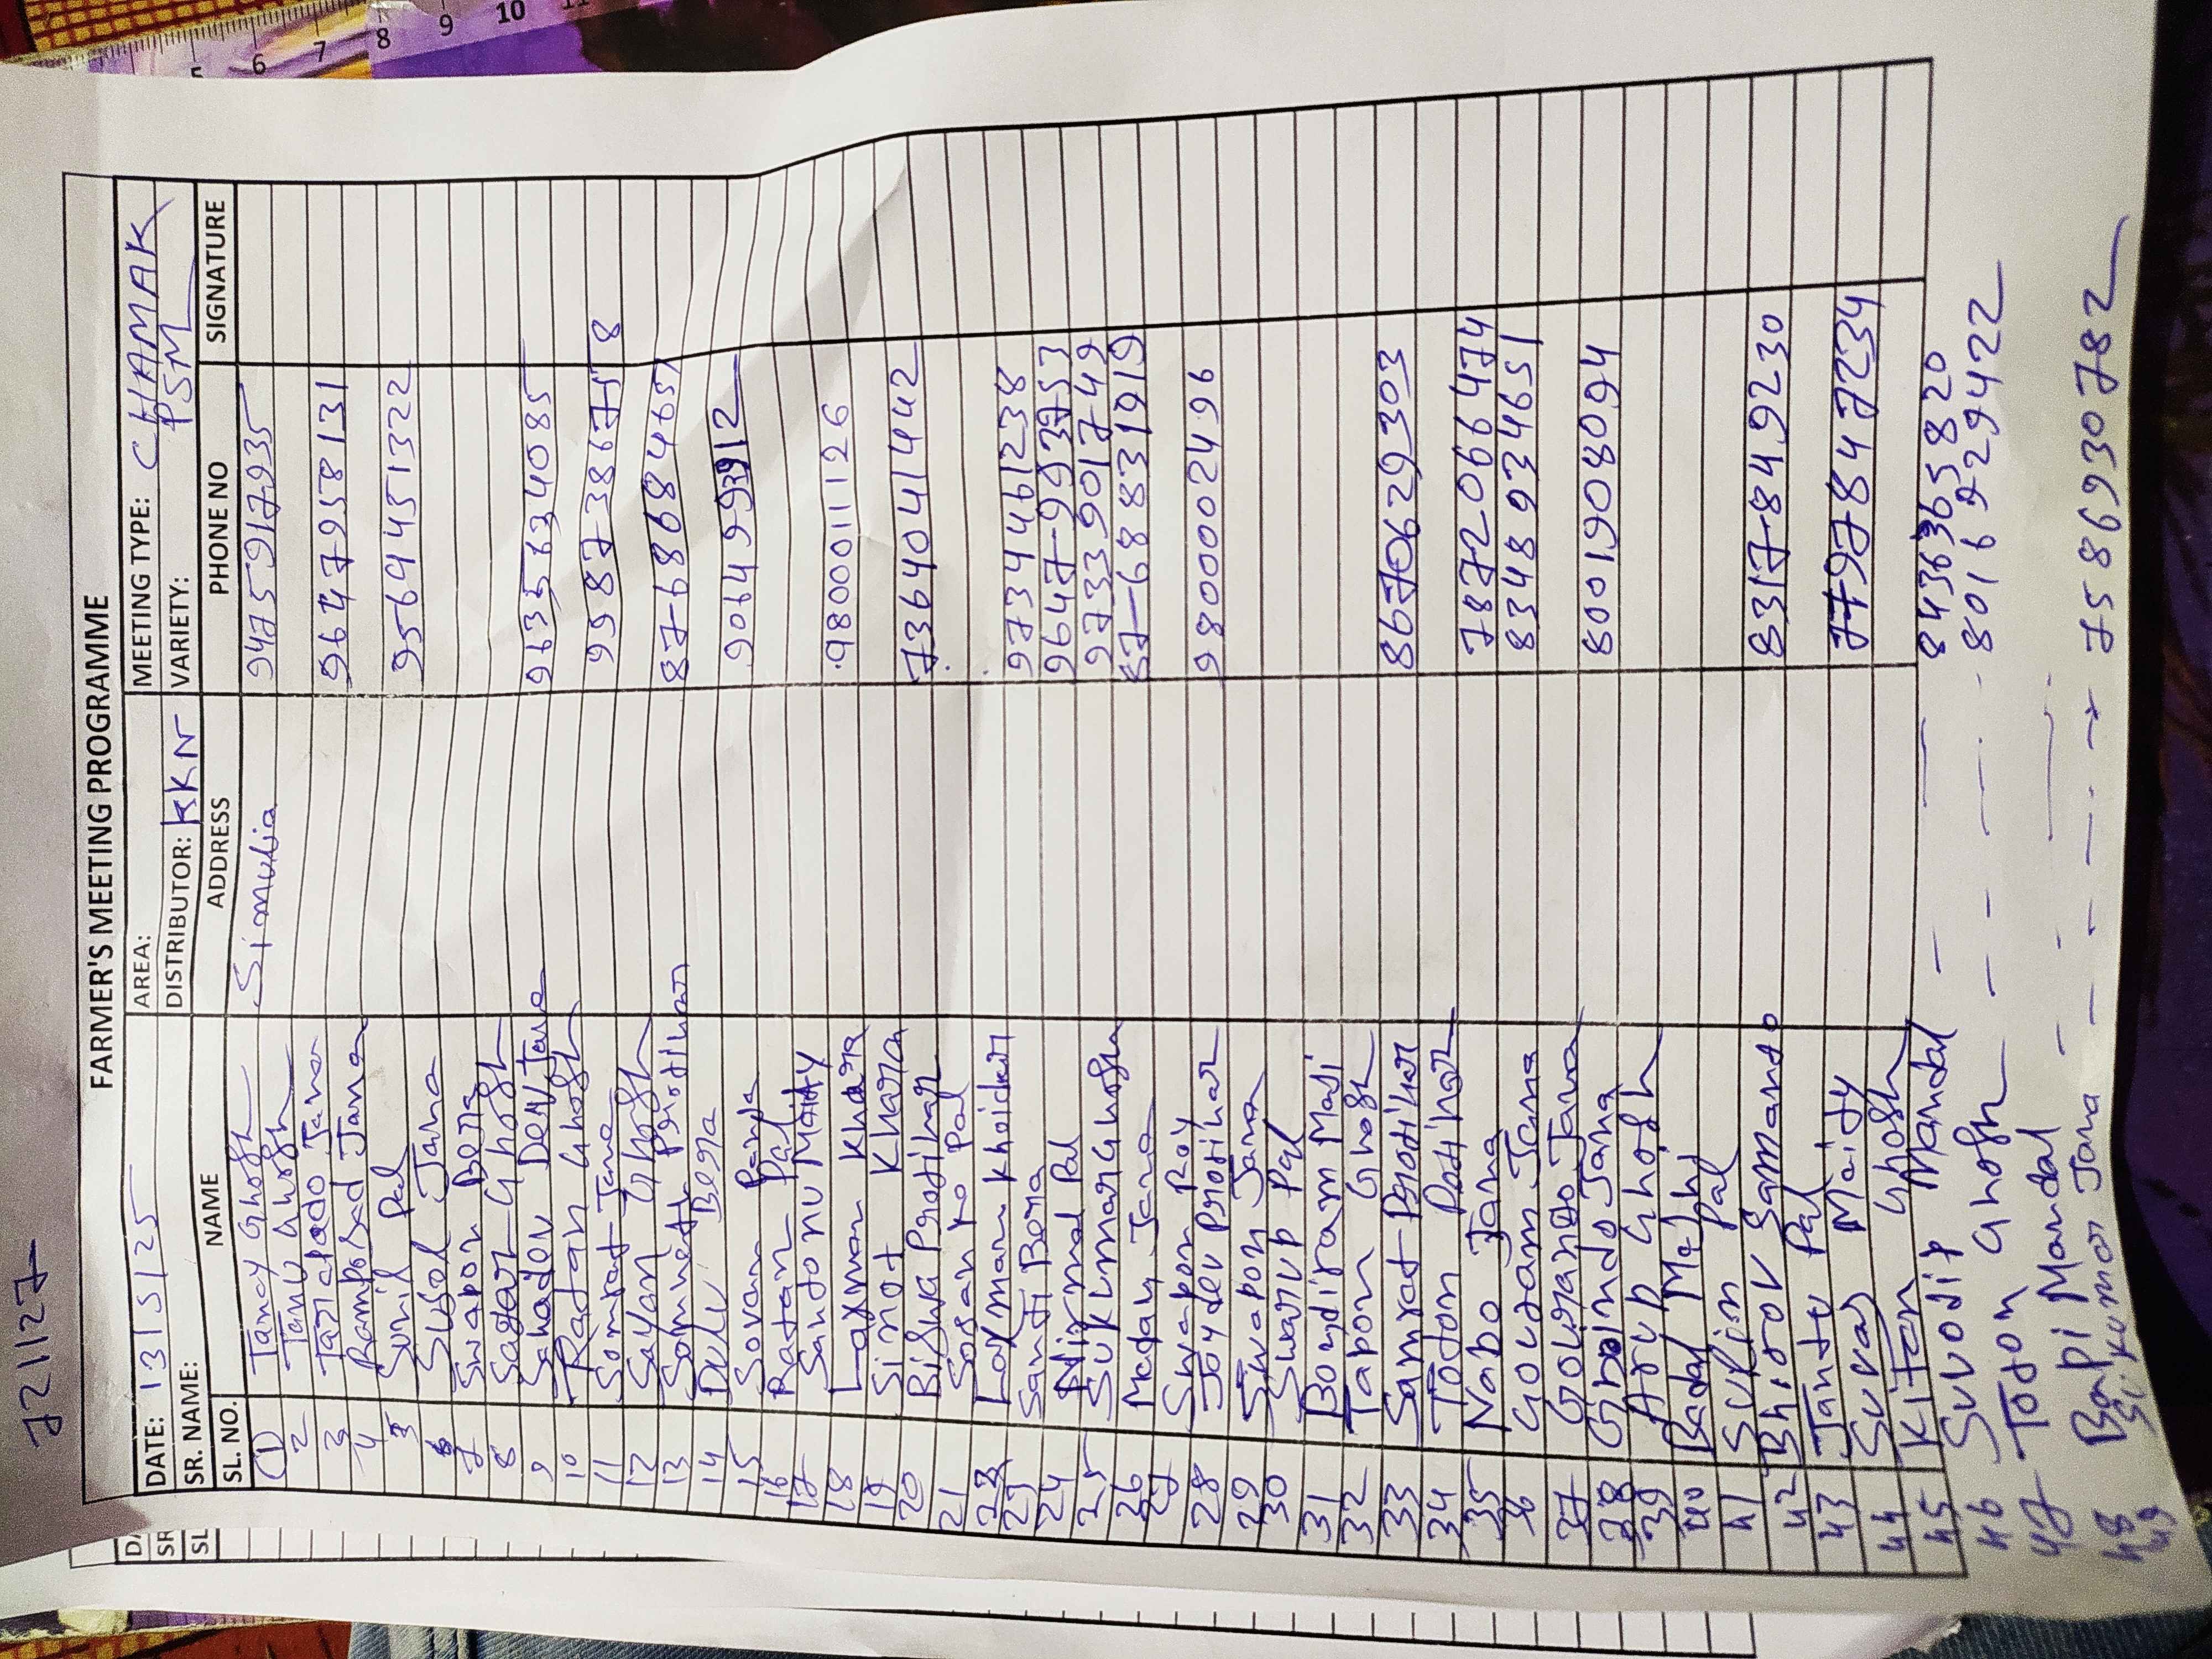 721127
FARMER'S MEETING PROGRAMME
DATE: 13/5/25 AREA: MEETING TYPE: CHAMAK
SR. NAME: DISTRIBUTOR: KKN VARIETY: PSM
SL. NO. NAME ADDRESS PHONE NO SIGNATURE
1 Tanay Ghosh Simulia 9475917935
2 Tanu Ghosh
3 Tarapado Jana 9647958131
4 Ramposad Jana
5 Sunil Pal 9569451322
6 Susol Jana
7 Swapon Bera
8 Sagar Ghosh
9 Sahadev Dev Jana 9635634085
10 Ratan Ghosh
11 Somrat Jana 9587386758
12 Sayan Ghosh
13 Somnath Protihar 8768684651
14 Dulu Bera
15 Sovan Panja 9064993912
16 Ratan Pal
17 Santonu Maity
18 Laxman Khara 9800011126
19 Simot Khara
20 Biswa Protihar 7364041442
21 Sosanko Pal
22 Laxman Kheidar 9734461238
23 Santi Bera 9647-993753
24 Nirmal Pal 9733901749
25 Sukumar Ghosh 87-68831919
26 Madan Jana
27 Swapon Roy
28 Joydev Protihar 9800002496
29 Swapon Jana
30 Swarup Pal
31 Boydiram Maji
32 Tapon Ghosh
33 Samrat Protihar 8670629303
34 Totan Potihar
35 Nabo Jana 7872066474
36 Goutam Jana 8348934651
37 Gouranto Jana
38 Gobindo Jana 8001908094
39 Arup Ghosh
40 Badal Majhi
41 Sukin Pal
42 Bhirov Samanto 8317-849230
43 Jantu Pal
44 Suvas Maity 7797847234
45 Kiton Ghosh
46 Suvodip Mandal 8436365820
47 Totan Ghosh 8016929422
48 Bapi Mandal
49 Sikumar Jana 7586930782